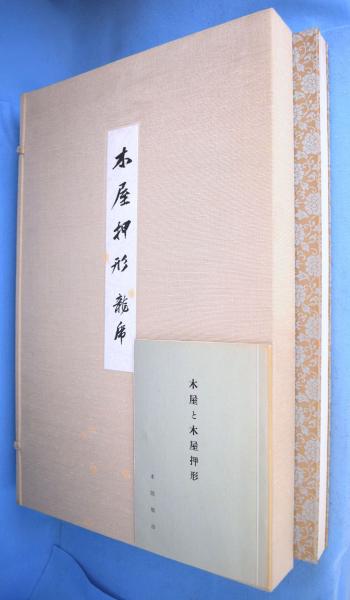 木屋押形 龍虎
木屋と木屋押形